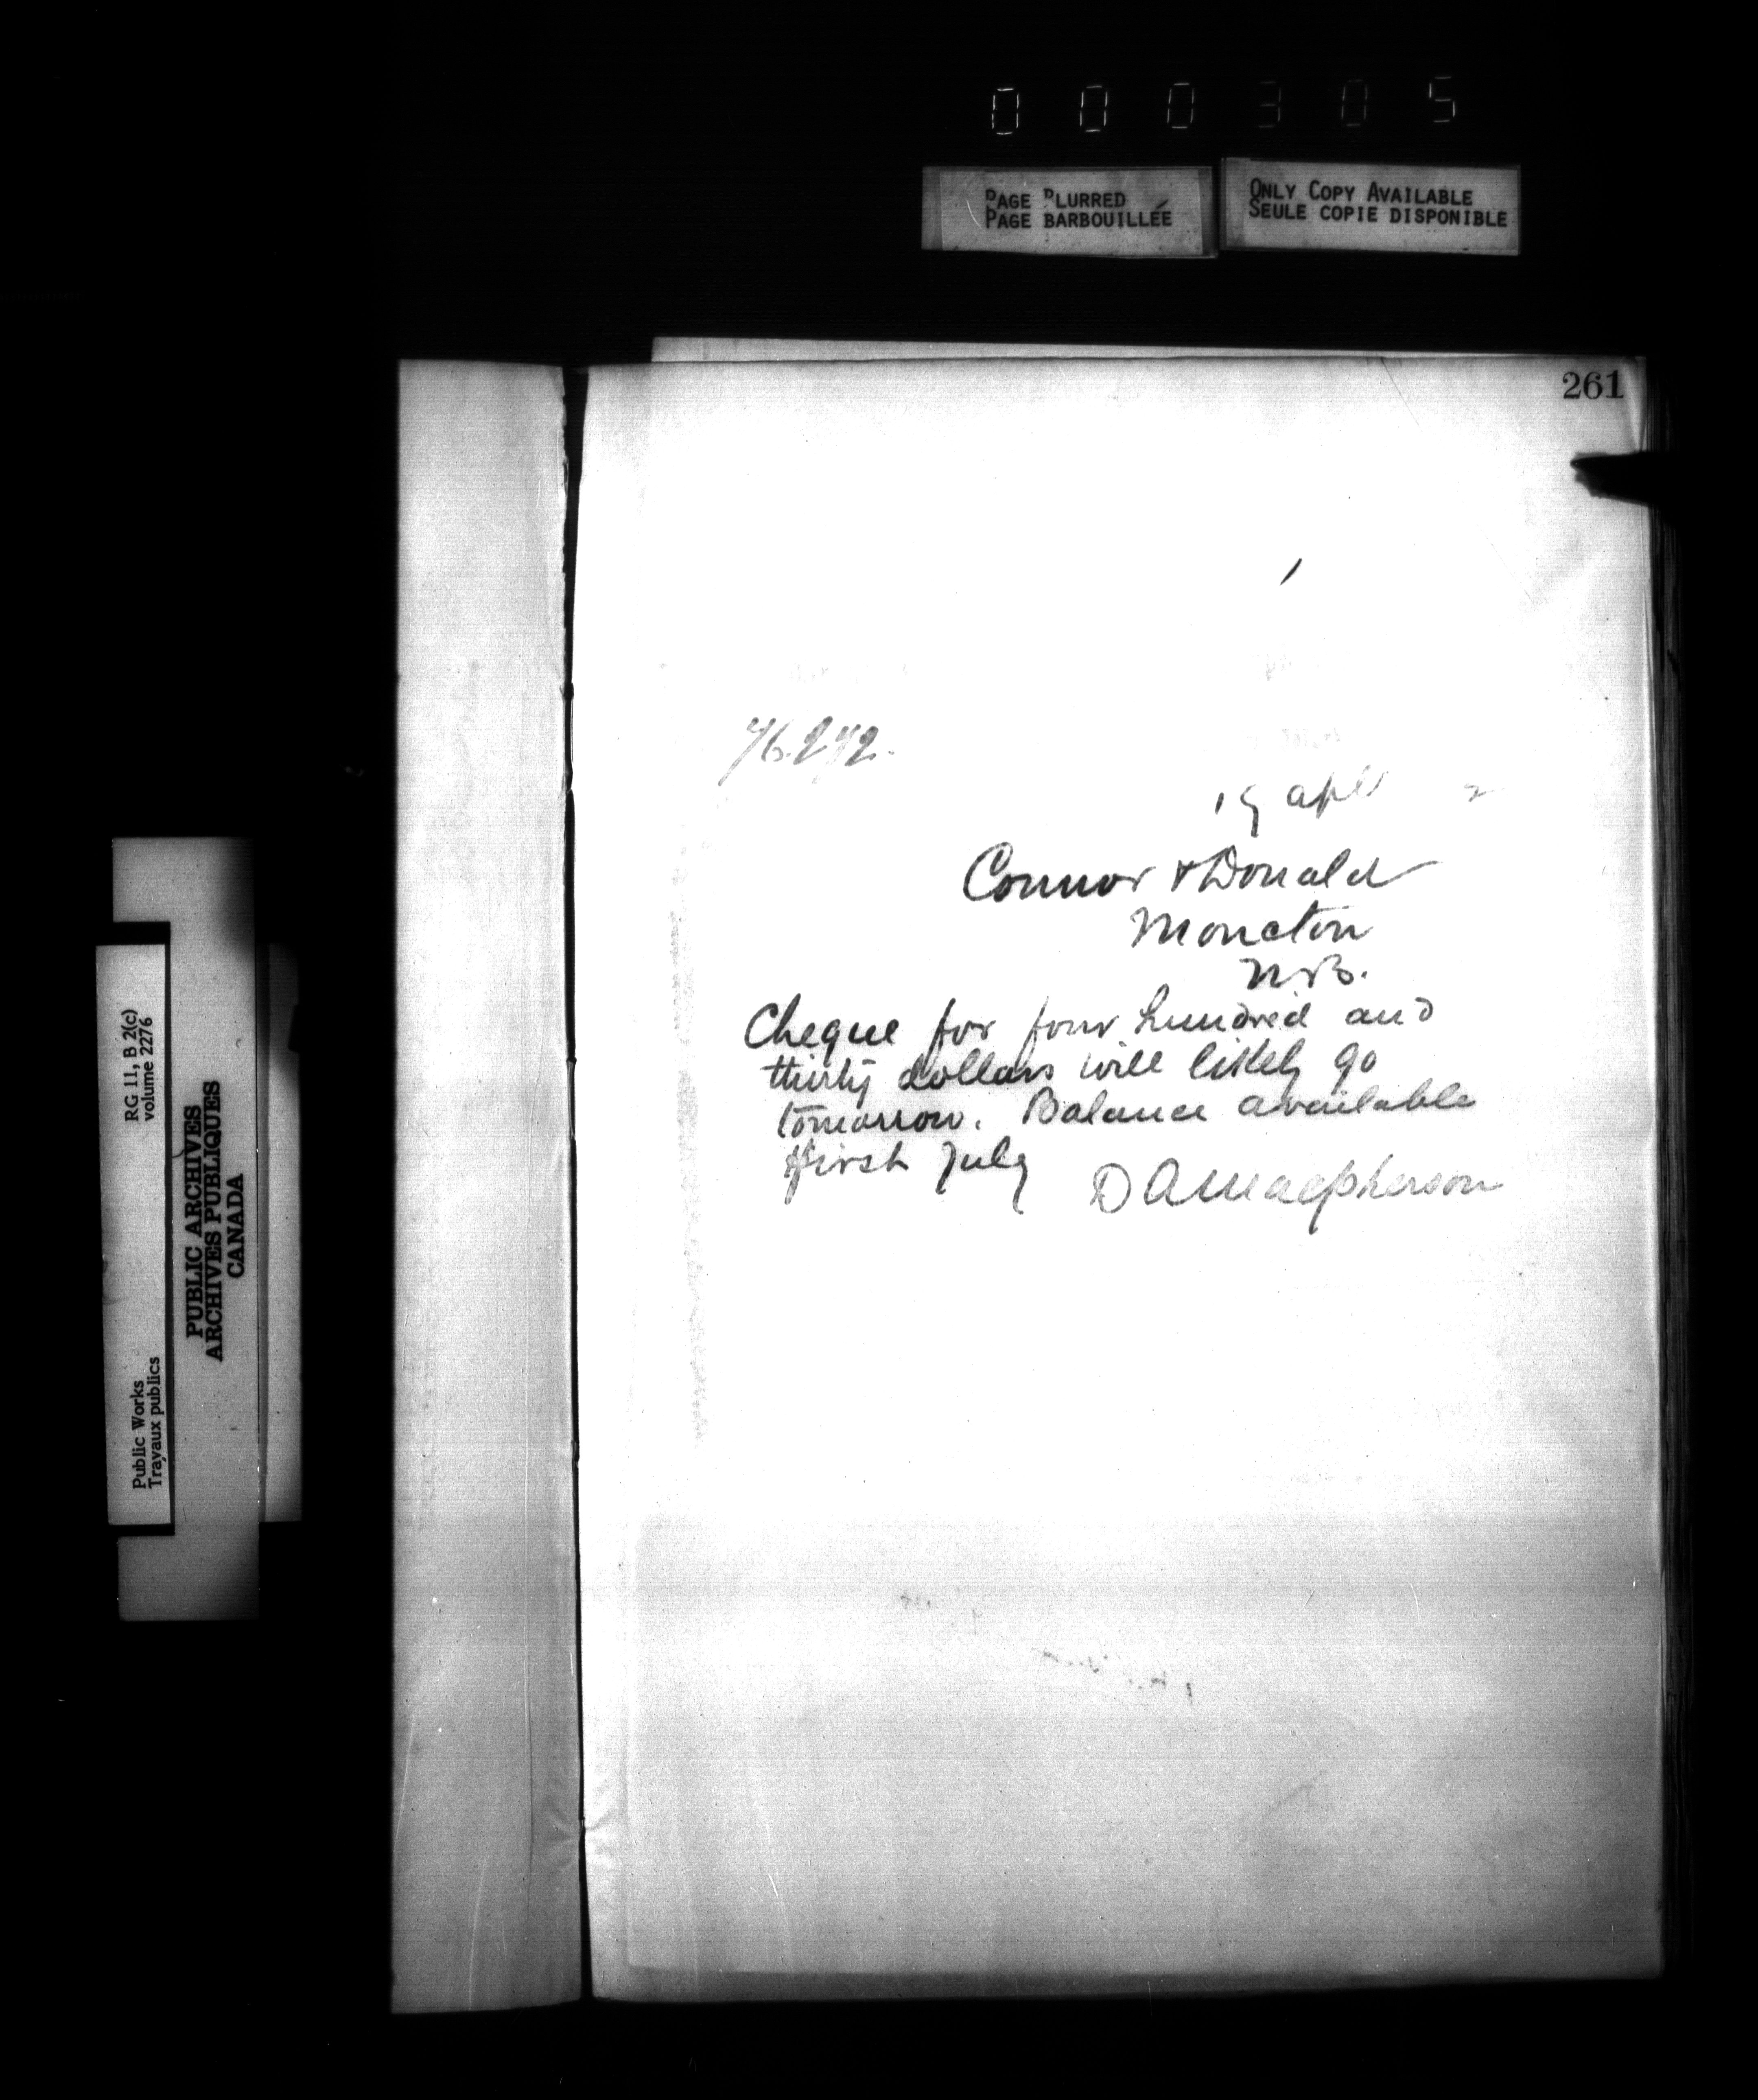 000305
PAGE BLURRED
PAGE BARBOUILLÉE
ONLY COPY AVAILABLE
SEULE COPIE DISPONIBLE
261
19 apl 2
Connor & Donald
Moncton
N.B.
Cheque for four hundred and
thirty dollars will likely go
tomorrow. Balance available
first July
D A Macpherson
RG 11, B 2(c)
volume 2276
Public Works
Travaux publics
PUBLIC ARCHIVES
ARCHIVES PUBLIQUES
CANADA